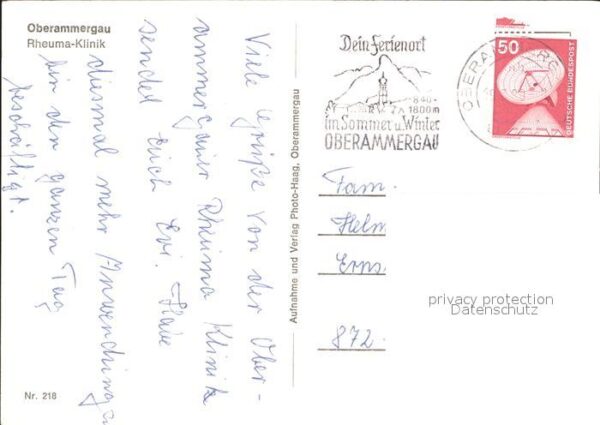 Oberammergau
Rheuma-Klinik
Viele Grüße von der Ober-
ammergauer Rheuma Klinik
sendet Euch Evi. Habe
diesmal mehr Anwendungen
bin den ganzen Tag
beschäftigt.
Nr. 218
Aufnahme und Verlag Photo-Haag, Oberammergau
Dein Ferienort
840-
1800m
im Sommer u. Winter
OBERAMMERGAU
50
DEUTSCHE BUNDESPOST
Fam.
Helm
Erns
872
privacy protection
Datenschutz